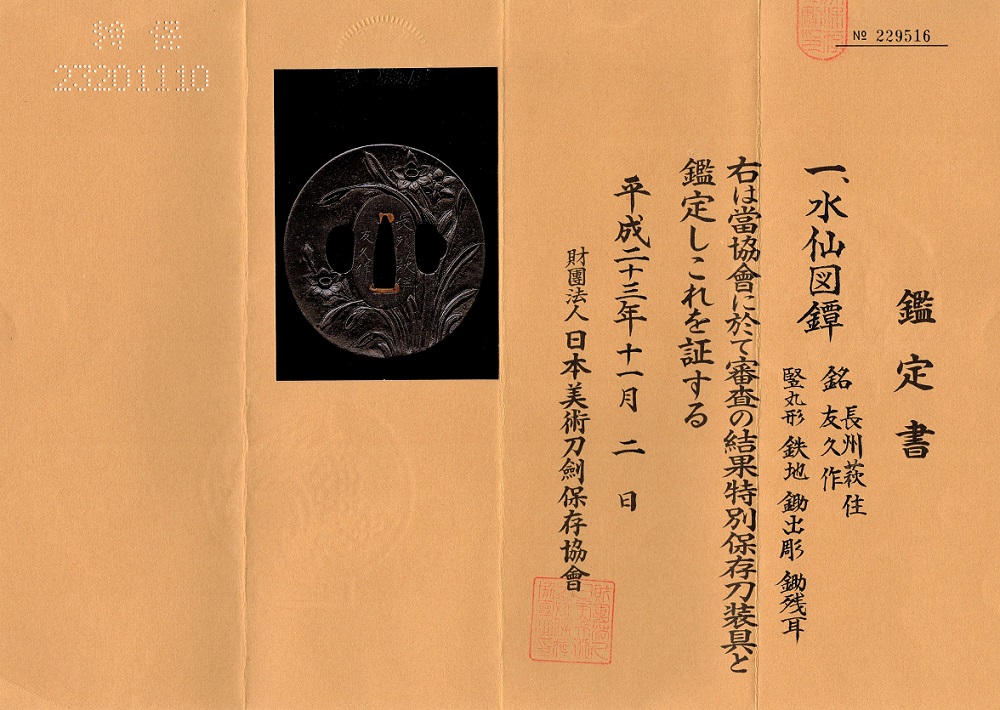 鑑定書
一、水仙図鐔
銘 長州萩住
友久作
竪丸形 鉄地 鋤出彫 鋤残耳
右は當協會に於て審査の結果特別保存刀装具と
鑑定しこれを証する
平成二十三年十一月二日
財團法人 日本美術刀劍保存協會
№ 229516
特保
23201110